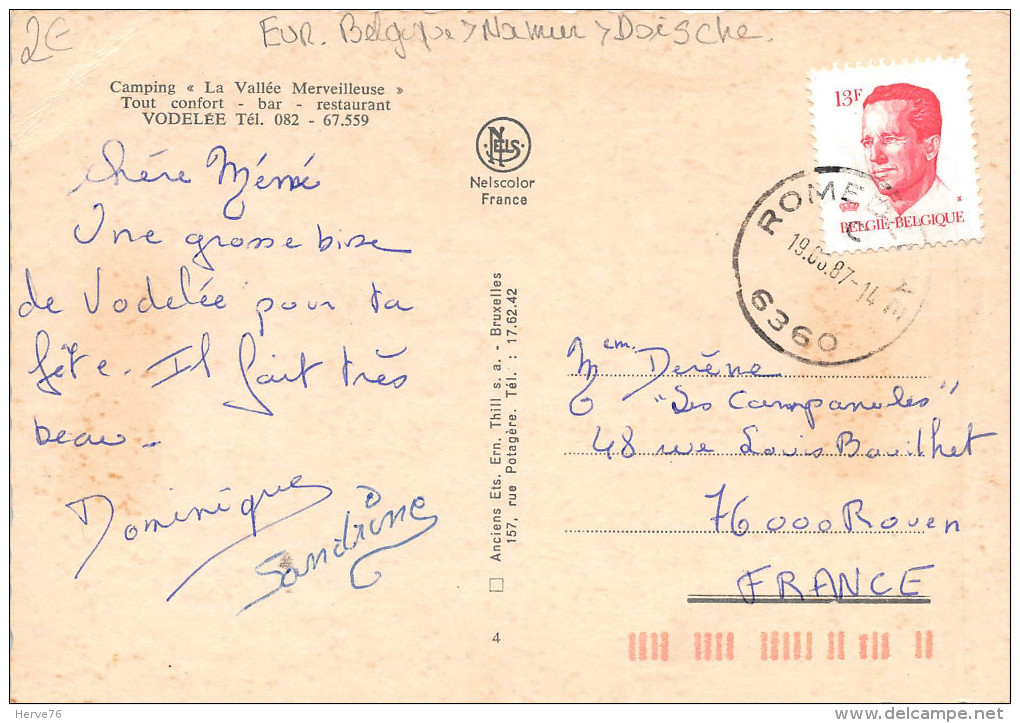 2€
EUR. Belgique > Namur > Doische.
Camping « La Vallée Merveilleuse »
Tout confort - bar - restaurant
VODELÉE Tél. 082 - 67.559
Chère Mémé
Une grosse bise
de Vodelée pour ta
fête. Il fait très
beau -
Dominique
Sandrine
NELS
Nelscolor
France
Anciens Ets. Ern. Thill s.a. - Bruxelles
157, rue Potagère. Tél. : 17.62.42
4
13F
BELGIË-BELGIQUE
ROMED
C
87-14
6360
Mem Derême
"Les Campanules"
48 rue Louis Bouilhet
76000 Rouen
FRANCE
Herve76
www.delcampe.net